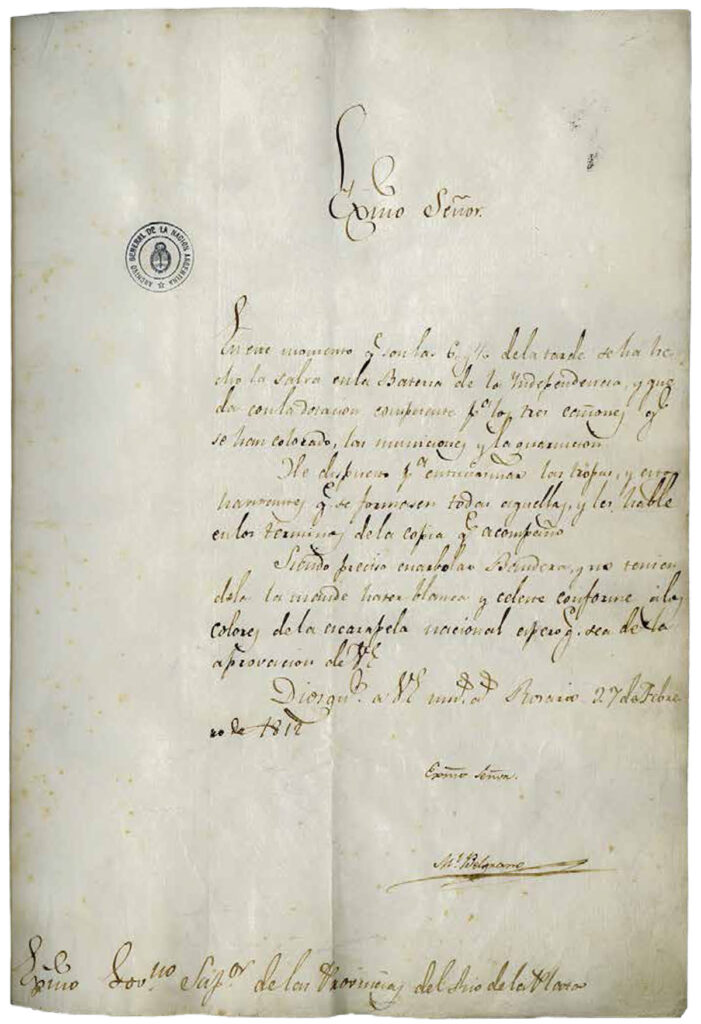 Exmo Señor.
ARCHIVO GENERAL DE LA NACION ARGENTINA
En este momento q.e son las 6 y ½ de la tarde se ha he-
cho la salva en la Bateria de la Independencia, y que-
da con la dotacion competente p.a los tres cañones q.e
se han colocado, las municiones y la guarnicion
He dispuesto p.a entusiasmar las tropas, y estos
havitantes q.e se formasen todas aquellas, y les hable
en los terminos de la copia q.e acompaño
Siendo preciso enarbolar Bandera, y no tenien-
dola la mande hacer blanca y celeste conforme á los
colores de la escarapela nacional espero q.e sea de la
aprovacion de VE
Dios gu.e a VE m.s a.s Rosario 27 de Febre-
ro de 1812
Exmo Señor.
M.l Belgrano
Exmo Gov.no Sup.or de las Provincias del Rio de la Plata